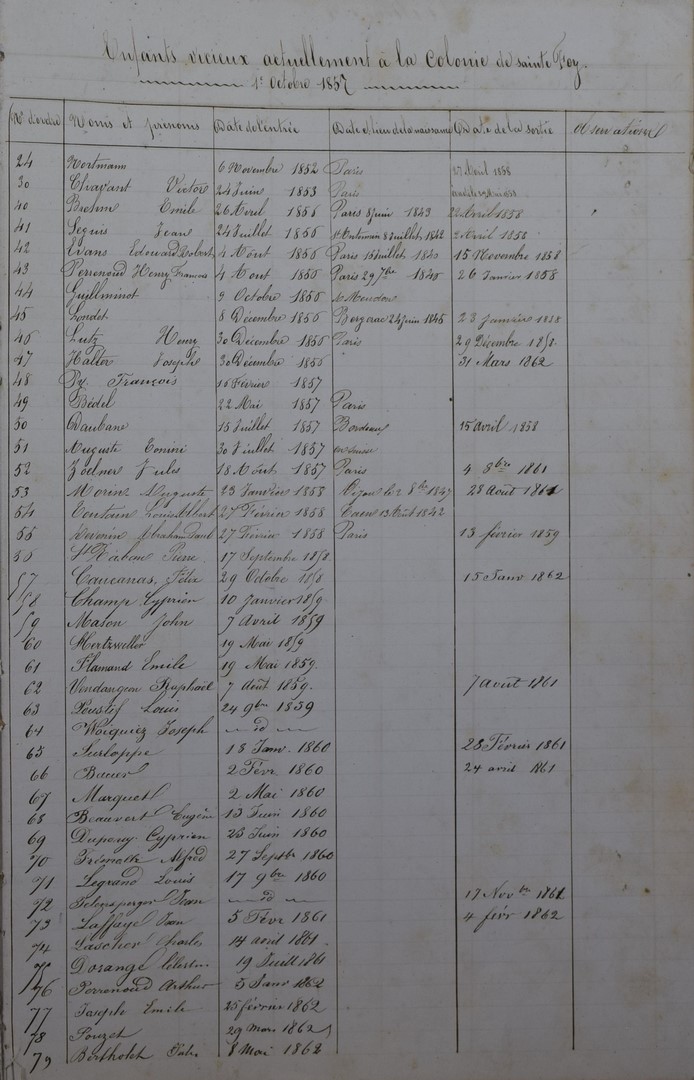 Enfants vicieux actuellement à la Colonie de sainte Foy.
1er Octobre 1857
No d'ordre Noms et prénoms Date de l'entrée Date et lieu de la naissance Date de la sortie Observations
24 Hortmann 6 Novembre 1852 Paris 27 Avril 1858
30 Chavant Victor 24 Juin 1853 Paris
40 Brehm Emile 26 Avril 1856 Paris 8 juin 1843 22 Avril 1858
41 Seguis Jean 24 Juillet 1856 St Antonin 8 Juillet 1842 2 Avril 1858
42 Evans Edouard Robert 4 Aout 1856 Paris 16 Juillet 1840 15 Novembre 1858
43 Perrenoud Henry Francois 4 Aout 1856 Paris 29 7bre 1840 26 Janvier 1858
44 Guilleminot 9 Octobre 1856 Meudon
45 Loudet 8 Décembre 1856 Bergerac 24 juin 1845 23 Janvier 1858
46 Lutz Henry 30 Décembre 1856 Paris 29 Décembre 1858
47 Halter Joseph 30 Décembre 1856 31 Mars 1862
48 Py François 16 Février 1857
49 Bédel 22 Mai 1857 Paris
50 Daubane 15 Juillet 1857 Bordeaux 15 avril 1858
51 Auguste 30 Juillet 1857 en Suisse
52 Zoelner Jules 18 Aout 1857 Paris 4 8bre 1861
53 Morin Auguste 23 Janvier 1858 Dijon le 2 8bre 1847 28 Août 1861
54 Coutain Louis Albert 27 Février 1858 Caen 13 Août 1842
55 Abraham Paul 27 Février 1858 Paris 13 février 1859
56 Pierre 17 Septembre 1858
57 Caucanas, Félix 29 Octobre 1858 15 Janv 1862
58 Champ Cyprien 10 janvier 1859
59 Mason John 7 Avril 1859
60 Hertzweiller 19 Mai 1859
61 Flamand Emile 19 Mai 1859.
62 Vendangeon Raphaël 7 Août 1859. 7 Août 1861
63 Poustif Louis 24 9bre 1859
64 Woiquiez Joseph — id —
65 Surloppe 18 Janv. 1860 28 Février 1861
66 Bauer 2 Févr 1860 24 avril 1861
67 Marquet 2 Mai 1860
68 Beauvert Eugène 13 Juin 1860
69 Dupouy Cyprien 23 Juin 1860
70 Trémalle Alfred 27 Septbre 1860
71 Legrand Louis 17 9bre 1860
72 Jean — id — 17 Novbre 1861
73 Laffaye Jean 5 Févr 1861 4 févr 1862
74 Lascher Charles 14 avril 1861.
75 Dorange Célestin 19 Juill 1861
76 Perrenoud Arthur 5 Janv 1862
77 Joseph Emile 25 février 1862
78 Pouzet 29 mars 1862
79 Berthold Jules 8 Mai 1862